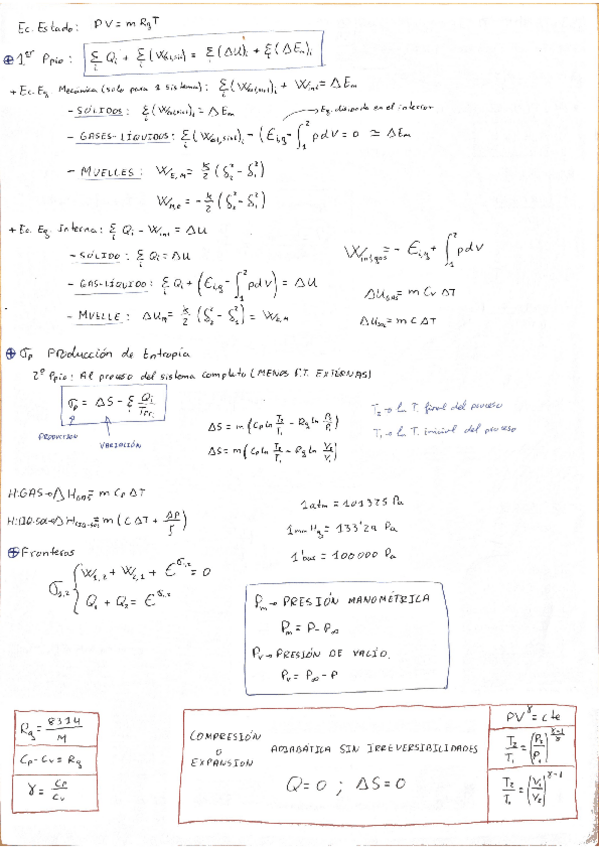 Ec. Estado: PV = m Rg T
⊕ 1er Ppio: Σi Qi + Σi (Wext,sist)i = Σi (ΔU)i + Σi (ΔEm)i
+ Ec. Eg Mecánica (solo para 1 sistema): Σi (Wext,sist)i + Wint = ΔEm
- SÓLIDOS: Σi (Wext,sist)i = ΔEm
→ Eg. disipada en el interior
- GASES-LÍQUIDOS: Σi (Wext,sist)i - (Ei,g - ∫₁² pdV = 0 ≃ ΔEm
- MUELLES: WE,M = k/2 (δ₂² - δ₁²)
WM,E = - k/2 (δ₂² - δ₁²)
+ Ec. Eg. Interna: Σi Qi - Wint = ΔU
Wint,gas = - Ei,g + ∫₁² pdV
- SÓLIDO: Σi Qi = ΔU
- GAS-LÍQUIDO: Σi Qi + (Ei,g - ∫₁² pdV) = ΔU
ΔUgas = m Cv ΔT
- MUELLE: ΔUM = k/2 (δ₂² - δ₁²) = WE,M
ΔUsol = m C ΔT
⊕ σp Producción de Entropía
2º Ppio: Al proceso del sistema completo (MENOS F.T. EXTERNAS)
σp = ΔS - Σi Qi/TFTi
PRODUCCIÓN
VARIACIÓN
ΔS = m (Cp ln T₂/T₁ - Rg ln P₂/P₁)
ΔS = m (Cp ln T₂/T₁ - Rg ln V₂/V₁)
T₂ → la T. final del proceso
T₁ → la T. inicial del proceso
H: GAS → ΔHGAS = m Cp ΔT
H: LIQ-SOL → ΔHLIQ-SOL = m (C ΔT + ΔP/ρ)
1 atm = 101325 Pa
1 mm Hg = 133'29 Pa
1 bar = 100000 Pa
⊕ Fronteras
σ1,2 { W1,2 + W2,1 + Eσ1,2 = 0
Q₁ + Q₂ = Eσ1,2
Pm → PRESIÓN MANOMÉTRICA
Pm = P - P∞
Pv → PRESIÓN DE VACÍO.
Pv = P∞ - P
Rg = 8314/M
Cp - Cv = Rg
γ = Cp/Cv
COMPRESIÓN
O
EXPANSIÓN
ADIABÁTICA SIN IRREVERSIBILIDADES
Q = 0 ; ΔS = 0
PV^γ = cte
T₂/T₁ = (P₂/P₁)^(γ-1/γ)
T₂/T₁ = (V₁/V₂)^(γ-1)